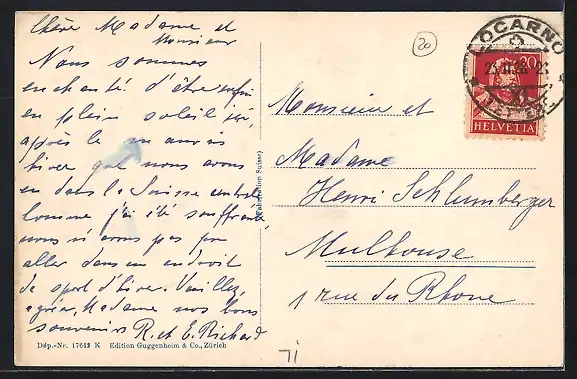 Chère Madame et
Monsieur
Nous sommes
enchanté d'être enfin
en plein soleil ici,
après le mauvais
hiver que nous avons
eu dans la Suisse centrale
Comme j'ai été souffrante
nous n'avons pas pu
aller dans un endroit
de sport d'hiver. Veuillez
agréer, Madame nos bons
souvenirs R. et E. Richard
Dép.-Nr. 17642 K Edition Guggenheim & Co., Zürich
(Fabrication Suisse)
20
LOCARNO
20
HELVETIA
Monsieur et
Madame
Henri Schlumberger
Mulhouse
1 rue du Rhone